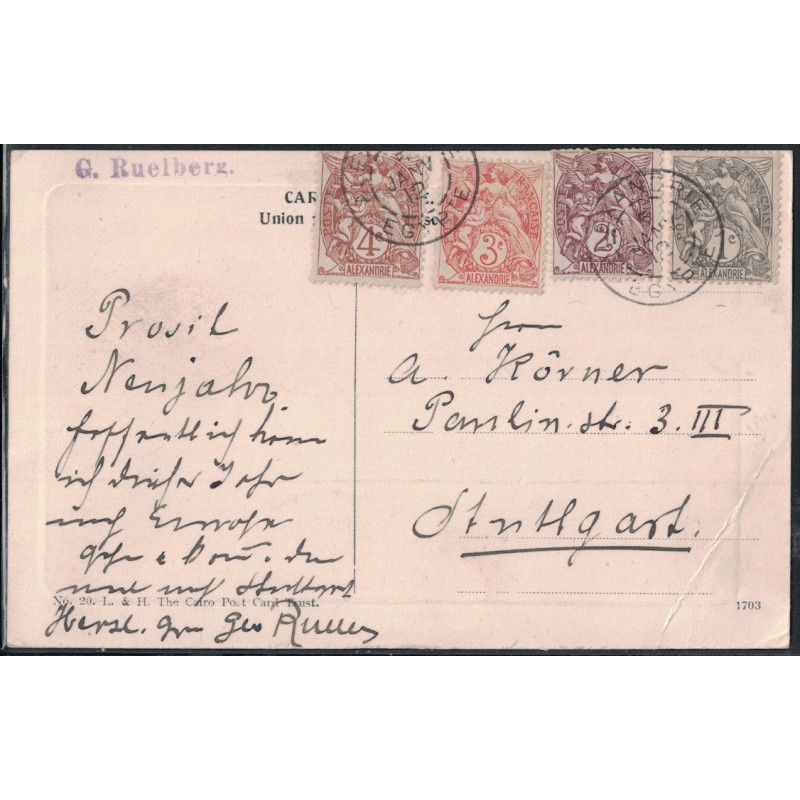 G. Ruelberg.
CAR
Union
4c
ALEXANDRIE
3c
ALEXANDRIE
2c
ALEXANDRIE
1c
ALEXANDRIE
POSTES FRANÇAISE
ALEXANDRIE
EGYPTE
JANV
Prosit
Neujahr,
hoffentlich komme
ich dieses Jahr
nach Europa
dann
und nach Stuttgart
Herzl. Geo Ruelberg
Herrn
A. Körner
Paulin.str. 3. III
Stuttgart.
No. 20. L. & H. The Cairo Post Card Trust.
1703